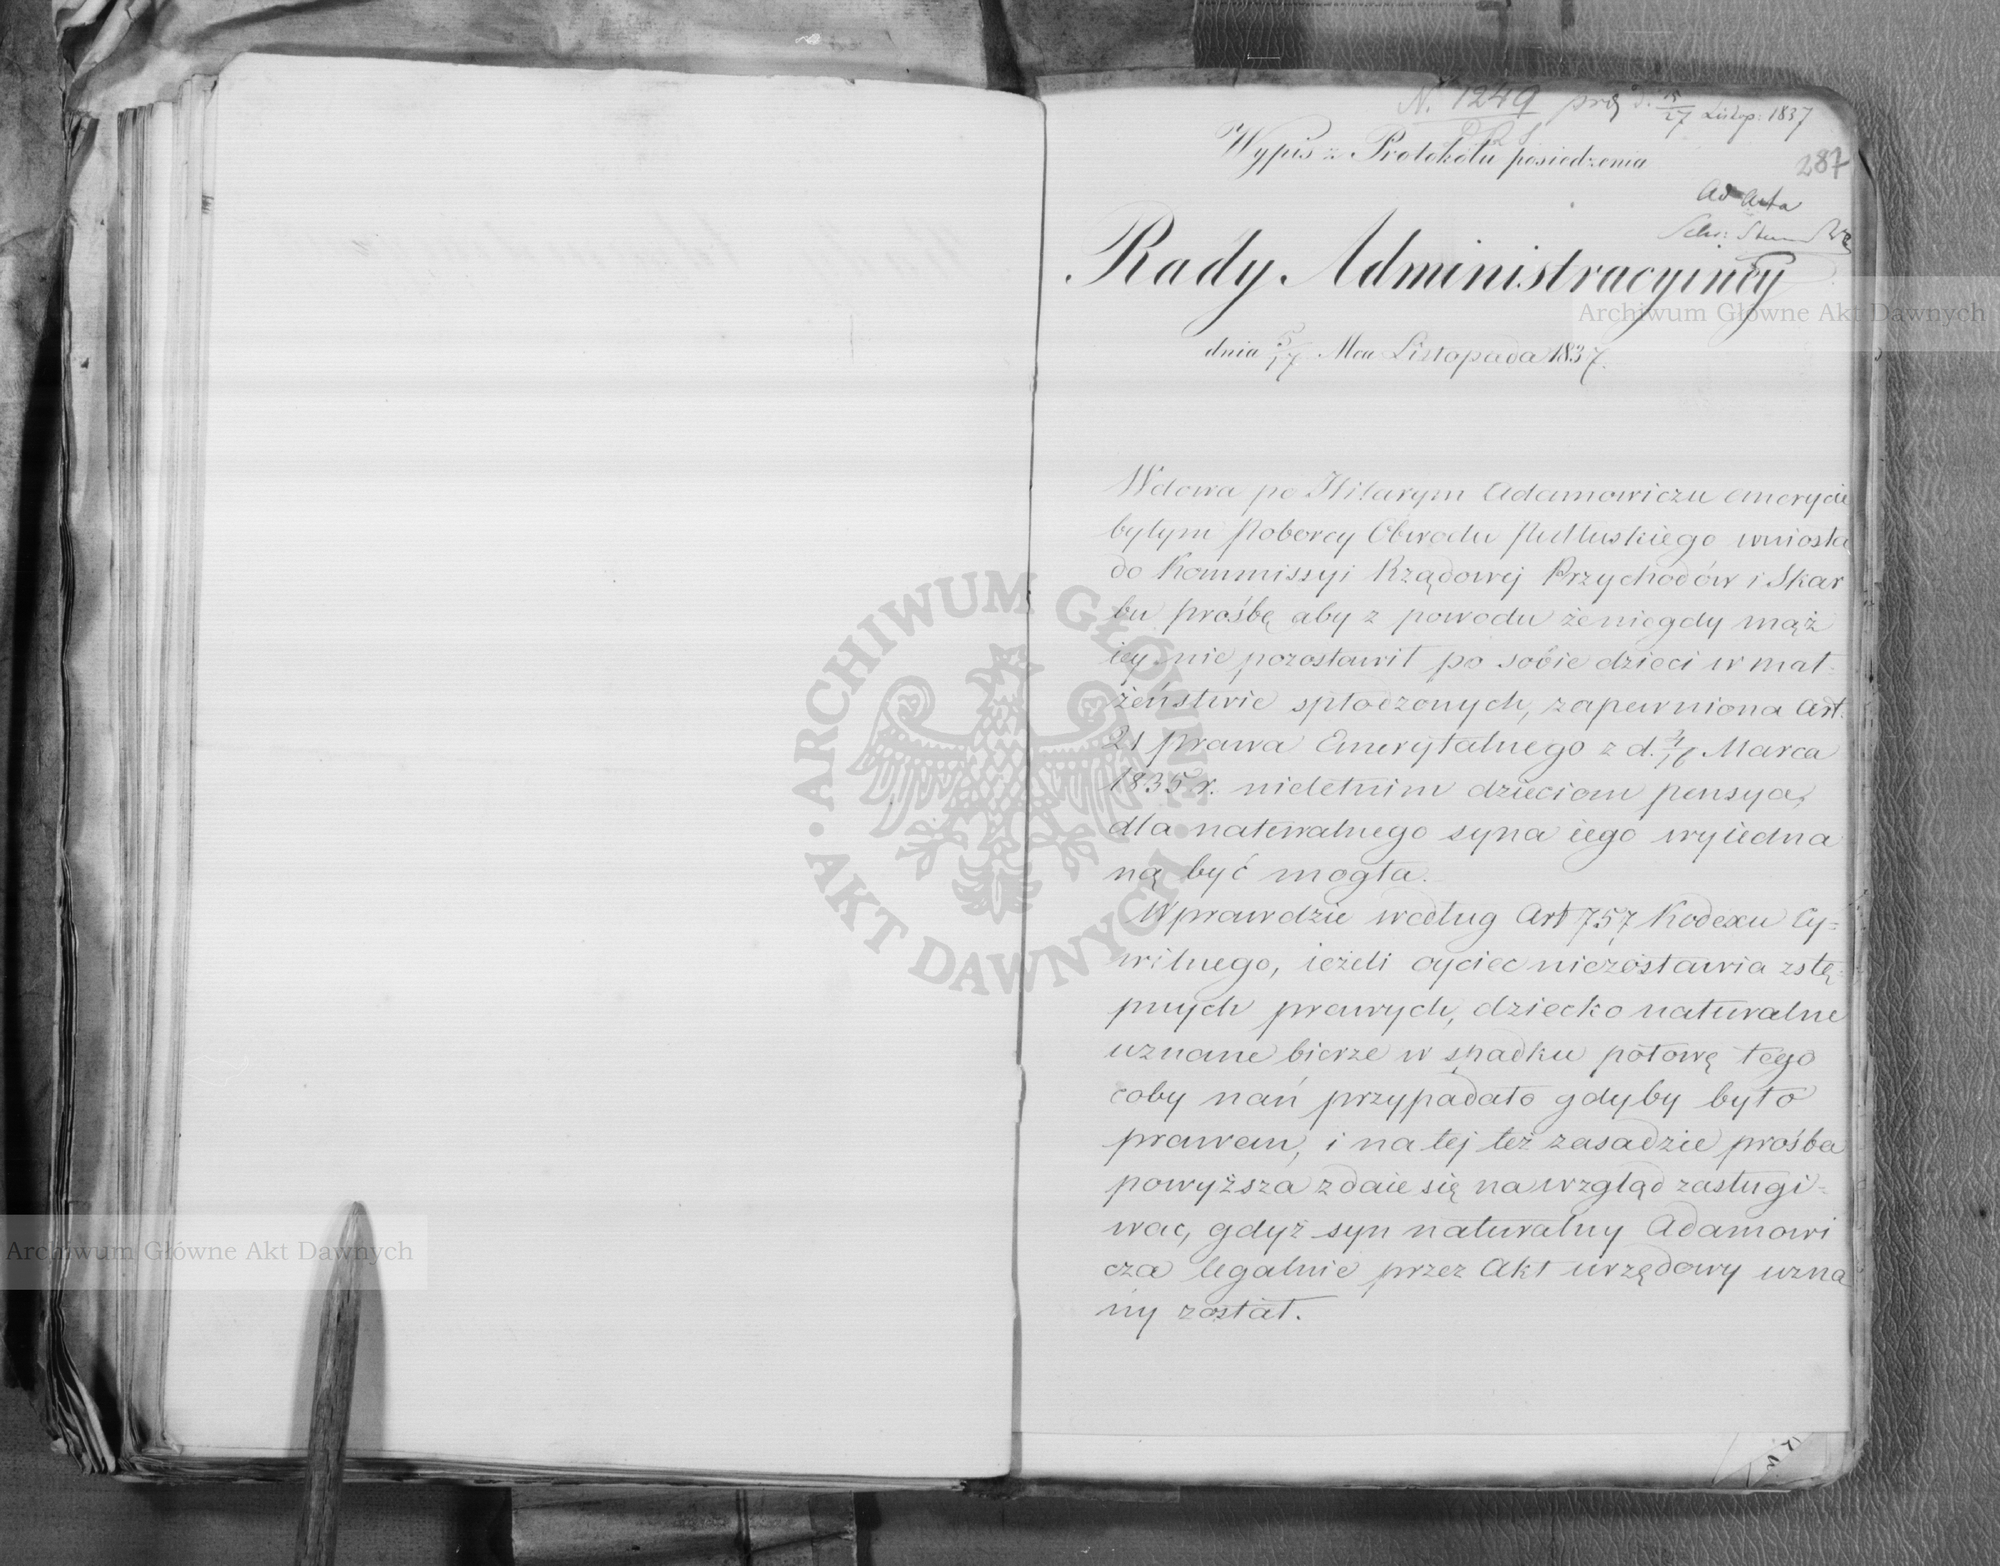 N. 1249 prz d. 15/27 Listop: 1837
Wypis z Protokołu posiedzenia
287
Ad Acta
Rady Administracyiney
dnia 5/17 Mca Listopada 1837.
Wdowa po Hilarym Adamowiczu emerycie
byłym Poborcy Obwodu Pułtuskiego wniosła
do Kommissyi Rządowej Przychodów i Skar
bu prośbę aby z powodu że niegdy mąż
iey nie pozostawił po sobie dzieci w mał-
żeństwie spłodzonych, zapewniona Art.
21 prawa Emerytalnego z d. 4/16 Marca
1835 r. nieletnim dzieciom pensya,
dla naturalnego syna iego wyiedna
ną być mogła.
Wprawdzie według Art 757 Kodexu Cy=
wilnego, ieżeli oyciec niezostawia zstę-
pnych prawych, dziecko naturalne
uznane bierze w spadku połowę tego
coby nań przypadało gdyby było
prawem, i na tej też zasadzie prośba
powyższa zdaie się na wzgląd zasługi=
wac, gdyż syn naturalny Adamowi
cza legalnie przez Akt urzędowy uzna
ny został.
Archiwum Główne Akt Dawnych
Archiwum Główne Akt Dawnych
ARCHIWUM GŁÓWNE
AKT DAWNYCH